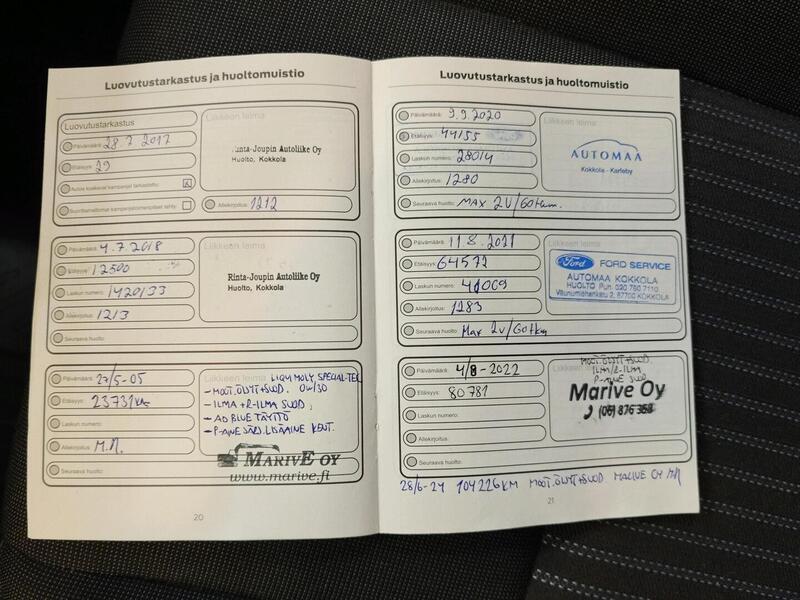 Luovutustarkastus ja huoltomuistio
Luovutustarkastus
Liikkeen leima
Päivämäärä: 28 7 2017
Etäisyys: 29
Rinta-Joupin Autoliike Oy
Huolto, Kokkola
Autoa koskevat kampanjat tarkastettu: x
Suorittamattomat kampanjatoimenpiteet tehty:
Allekirjoitus: 1212
Päivämäärä: 4.7.2018
Liikkeen leima
Etäisyys: 12500
Rinta-Joupin Autoliike Oy
Huolto, Kokkola
Laskun numero: 1420133
Allekirjoitus: 1213
Seuraava huolto:
Päivämäärä: 27/5-05
Liikkeen leima
LIQUI MOLY SPECIAL-TEC
- MOOT.ÖLJYT+SUOD. 0W/30
Etäisyys: 23731km
- ILMA + R-ILMA SUOD,
Laskun numero:
- AD BLUE TÄYTTÖ
- P-AINE JÄRJ. LISÄAINE KÄYT.
Allekirjoitus: M.N.
MARIVE OY
www.marive.fi
Seuraava huolto:
20
Luovutustarkastus ja huoltomuistio
Päivämäärä: 9.9.2020
Liikkeen leima
Etäisyys: 44155
AUTOMAA
Kokkola - Karleby
Laskun numero: 28014
Allekirjoitus: 1280
Seuraava huolto: MAX 2V/60tkm.
Päivämäärä: 11.8.2021
Liikkeen leima
Etäisyys: 64572
Ford FORD SERVICE
AUTOMAA KOKKOLA
HUOLTO Puh. 020 760 7110
67700 KOKKOLA
Laskun numero: 41009
Allekirjoitus: 1283
Seuraava huolto: Max 2v/60tkm
Päivämäärä: 4/8-2022
MOOT.ÖLJYT+SUOD.
ILMA/R-ILMA
Etäisyys: 80781
Marive Oy
Laskun numero:
Allekirjoitus:
Seuraava huolto:
28/6-24 104226KM MOOT.ÖLJYT+SUOD MARIVE OY MN
21